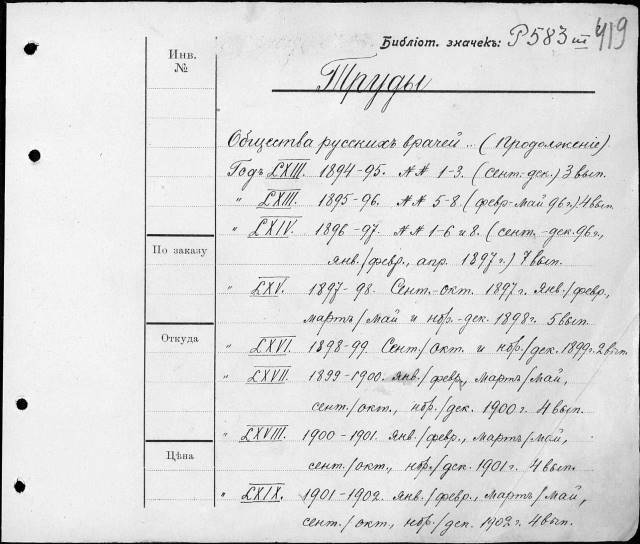 Библіот. значекъ: P583 III 419
Инв.
№
Труды
Общества русскихъ врачей .. (Продолженіе).
Годъ LXIII. 1894-95. №№ 1-3. (сент.-дек.) 3 вып.
" LXIII. 1895-96. №№ 5-8. (февр.-май 96 г.) 4 вып.
" LXIV. 1896-97. №№ 1-6 и 8. (сент.-дек. 96 г.,
По заказу
янв./февр., апр. 1897 г.) 7 вып.
" LXV. 1897-98. Сент.-окт. 1897 г. Янв./февр.,
мартъ/май и нбр.-дек. 1898 г. 5 вып.
Откуда
" LXVI. 1898-99. Сент./окт. и нбр./дек. 1899 г. 2 вып.
" LXVII. 1899-1900. Янв./февр., мартъ/май,
сент./окт., нбр./дек. 1900 г. 4 вып.
" LXVIII. 1900-1901. Янв./февр., мартъ/май,
Цѣна
сент./окт., нбр./дек. 1901 г. 4 вып.
" LXIX. 1901-1902. Янв./февр., мартъ/май,
сент./окт., нбр./дек. 1902 г. 4 вып.